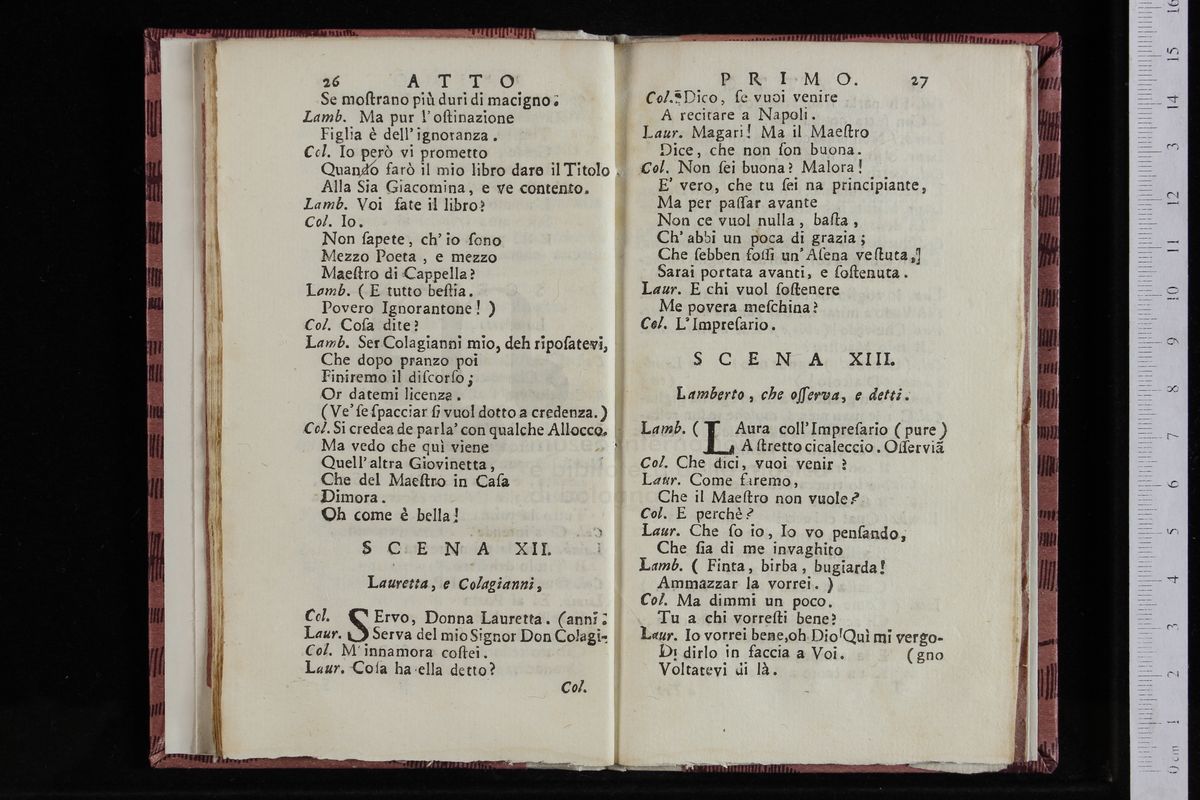 26 ATTO
Se moſtrano più duri di macigno.
Lamb. Ma pur l'oſtinazione
Figlia è dell'ignoranza.
Col. Io però vi prometto
Quando farò il mio libro dare il Titolo
Alla Sia Giacomina, e ve contento.
Lamb. Voi fate il libro?
Col. Io.
Non ſapete, ch'io ſono
Mezzo Poeta, e mezzo
Maeſtro di Cappella?
Lamb. (E tutto beſtia.
Povero Ignorantone!)
Col. Coſa dite?
Lamb. Ser Colagianni mio, deh ripoſatevi,
Che dopo pranzo poi
Finiremo il diſcorſo;
Or datemi licenza.
(Ve' ſe ſpacciar ſi vuol dotto a credenza.)
Col. Si credea de parla' con qualche Allocco.
Ma vedo che quì viene
Quell'altra Giovinetta,
Che del Maeſtro in Caſa
Dimora.
Oh come è bella!
SCENA XII.
Lauretta, e Colagianni,
Col. SErvo, Donna Lauretta. (anni.
Laur. Serva del mio Signor Don Colagi-
Col. M'innamora coſtei.
Laur. Coſa ha ella detto?
Col.
PRIMO. 27
Col. Dico, ſe vuoi venire
A recitare a Napoli.
Laur. Magari! Ma il Maeſtro
Dice, che non ſon buona.
Col. Non ſei buona? Malora!
E' vero, che tu ſei na principiante,
Ma per paſſar avante
Non ce vuol nulla, baſta,
Ch'abbi un poca di grazia;
Che ſebben foſſi un'Aſena veſtuta,
Sarai portata avanti, e ſoſtenuta.
Laur. E chi vuol ſoſtenere
Me povera meſchina?
Col. L'Impreſario.
SCENA XIII.
Lamberto, che oſſerva, e detti.
Lamb. (LAura coll'Impreſario (pure)
A ſtretto cicaleccio. Oſſerviã
Col. Che dici, vuoi venir?
Laur. Come faremo,
Che il Maeſtro non vuole?
Col. E perchè?
Laur. Che ſo io, Io vo penſando,
Che ſia di me invaghito
Lamb. (Finta, birba, bugiarda!
Ammazzar la vorrei.)
Col. Ma dimmi un poco.
Tu a chi vorreſti bene?
Laur. Io vorrei bene, oh Dio! Quì mi vergo-
Di dirlo in faccia a Voi. (gno
Voltatevi di là.
0 cm 1 2 3 4 5 6 7 8 9 10 11 12 13 14 15 16